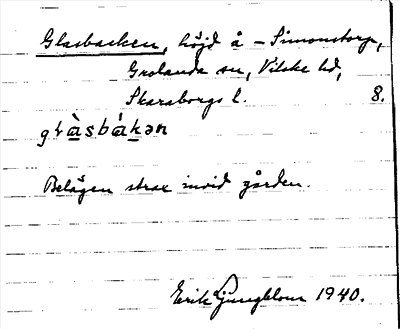 Glasbacken, höjd å – Simonstorp,
Grolanda sn, Vilske hd,
Skaraborgs l. 8.
glàsbákən
Belägen strax invid gården.
Erik Ljungblom 1940.